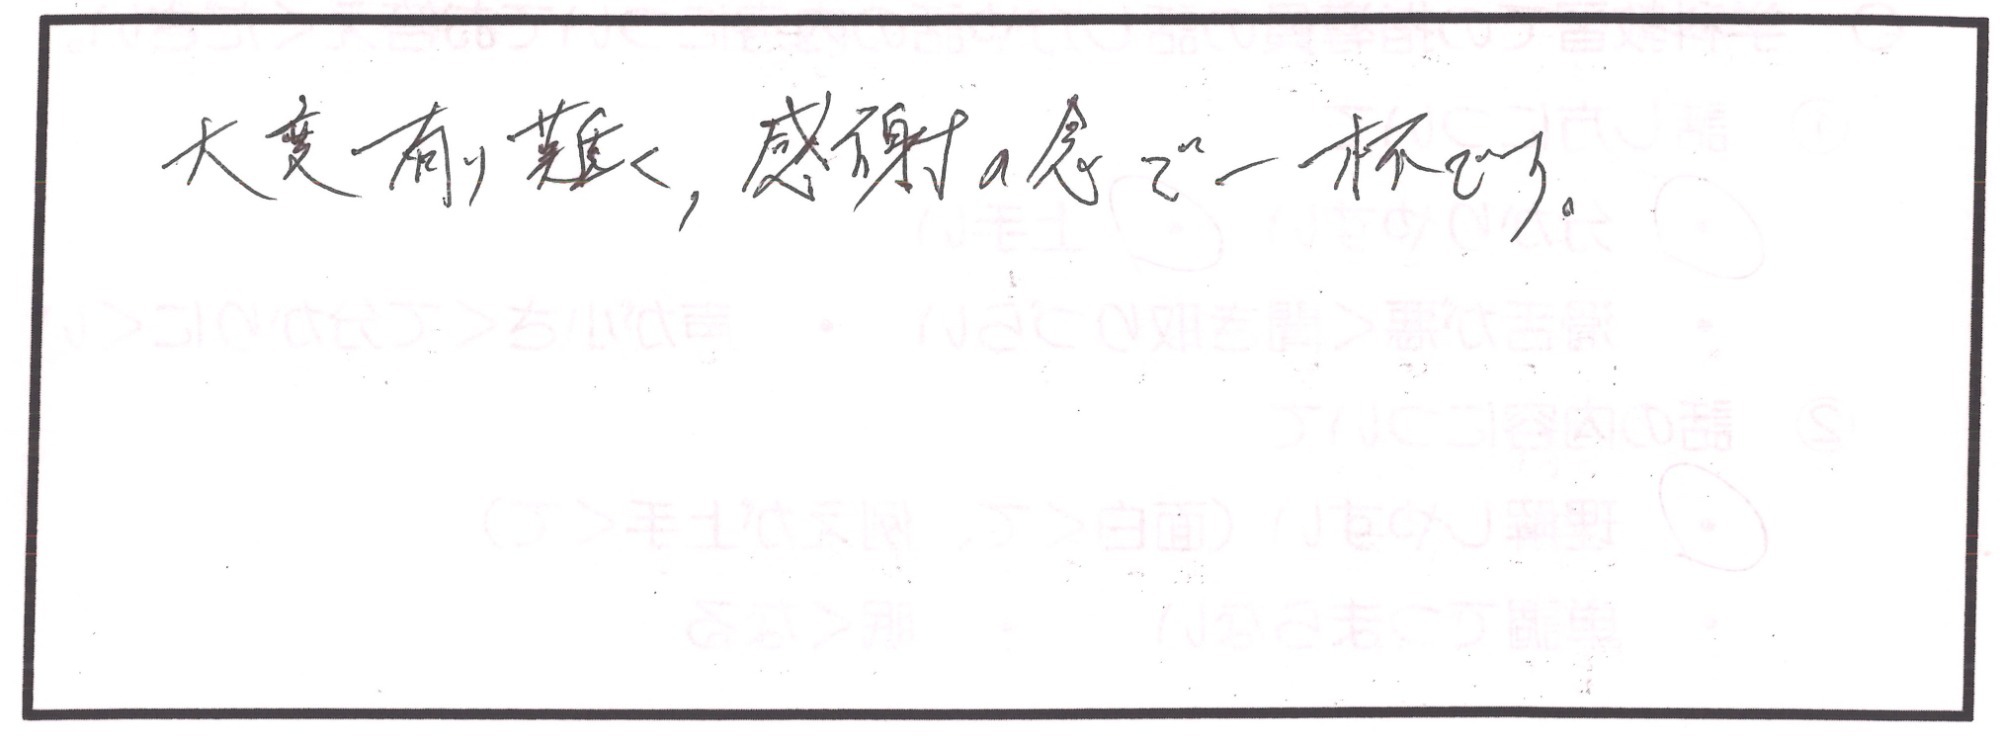 大変有り難く，感謝の念で一杯です。